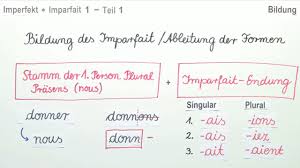 Imperfekt • Imparfait 1 – Teil 1
Bildung
Bildung des Imparfait / Ableitung der Formen
Stamm der 1. Person Plural
Präsens (nous)
+ Imparfait-Endung
Singular Plural
donner donnons 1. -ais -ions
2. -ais -iez
nous donn- 3. -ait -aient